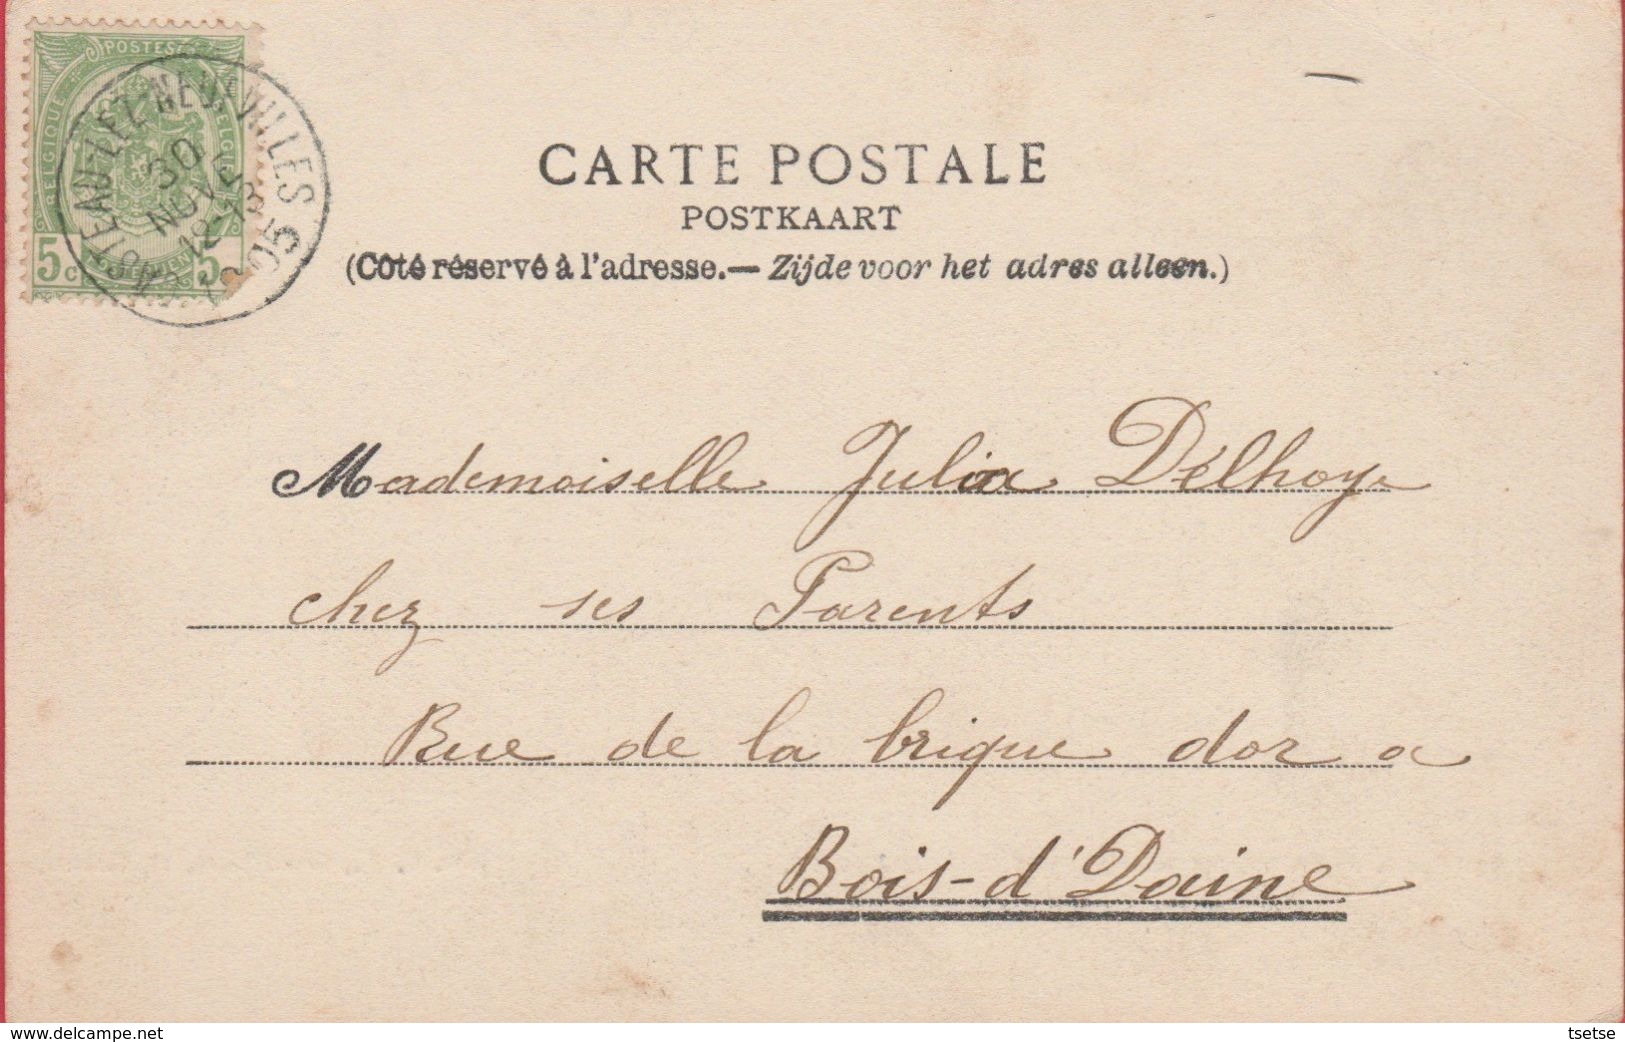 POSTES
BELGIQUE
BELGIE
5 5
30
NOVE
12-13
CARTE POSTALE
POSTKAART
(Côté réservé à l'adresse.— Zijde voor het adres alleen.)
Mademoiselle Julia Delhoye
chez ses Parents
Rue de la brique dor a
Bois-d'Daine
delcampe.net
tsetse